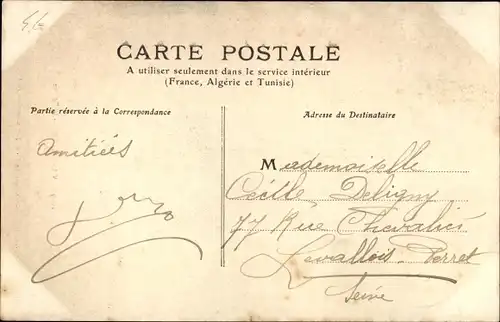 CARTE POSTALE
A utiliser seulement dans le service intérieur
(France, Algérie et Tunisie)
Partie réservée à la Correspondance
Adresse du Destinataire
Amitiées
Mademoiselle
Cécile Deligny
77 Rue Chevalier
Levallois-Perret
Seine